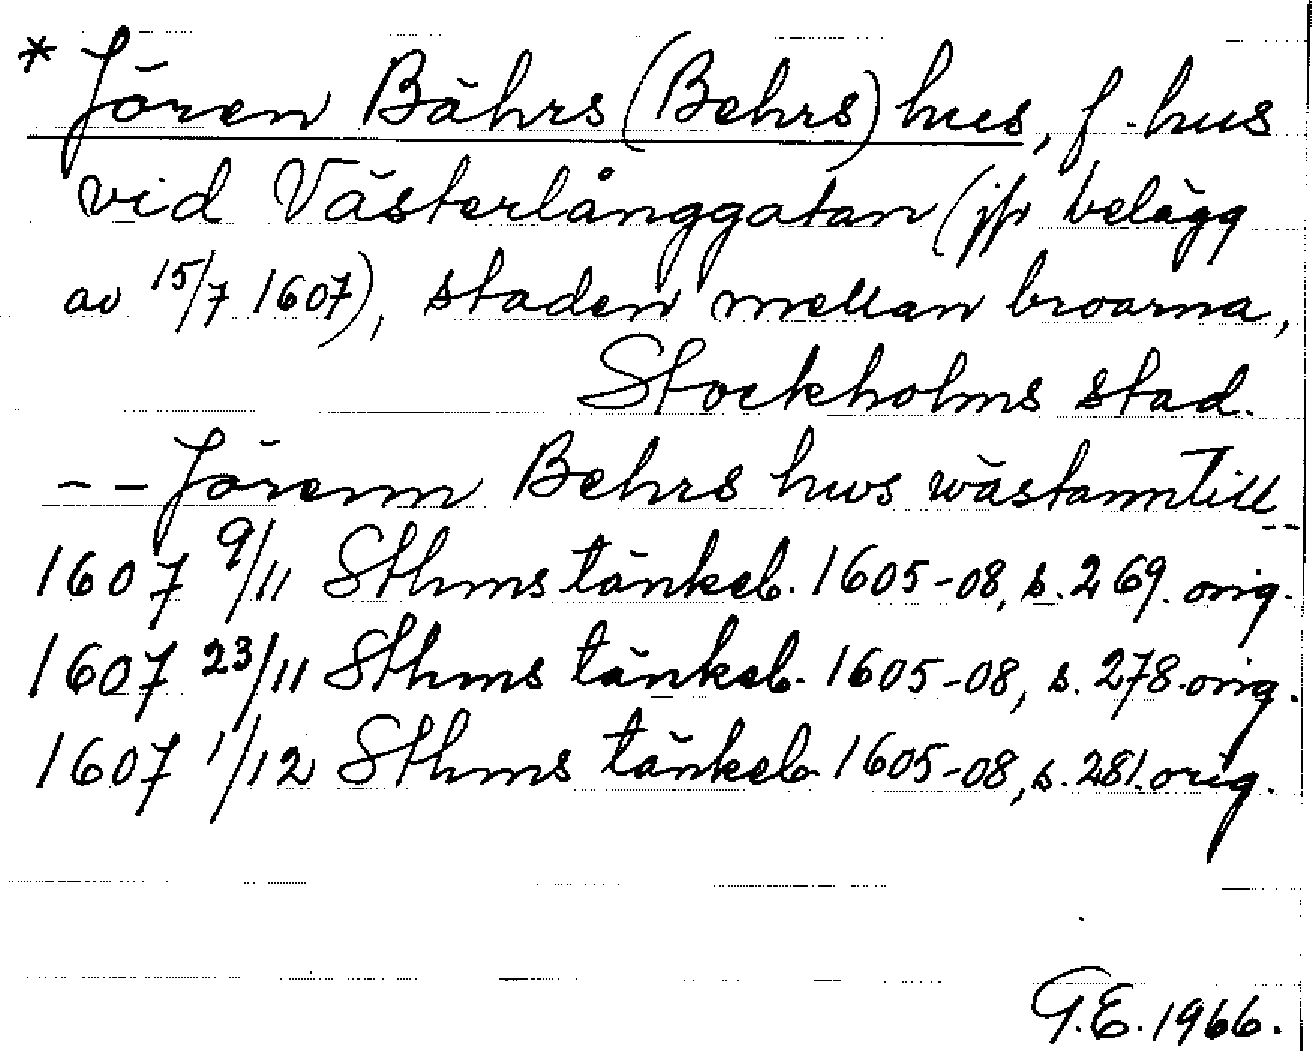 * Jören Bährs (Behrs) hus, f. hus
vid Västerlånggatan (jfr belägg
av 15/7 1607), staden mellan broarna,
Stockholms stad.
-- Jörenn Behrs hws wästanntill --
1607 9/11 Sthms tänkeb. 1605-08, s. 269. orig.
1607 23/11 Sthms tänkeb. 1605-08, s. 278. orig.
1607 1/12 Sthms tänkeb. 1605-08, s. 281. orig.
G.E. 1966.